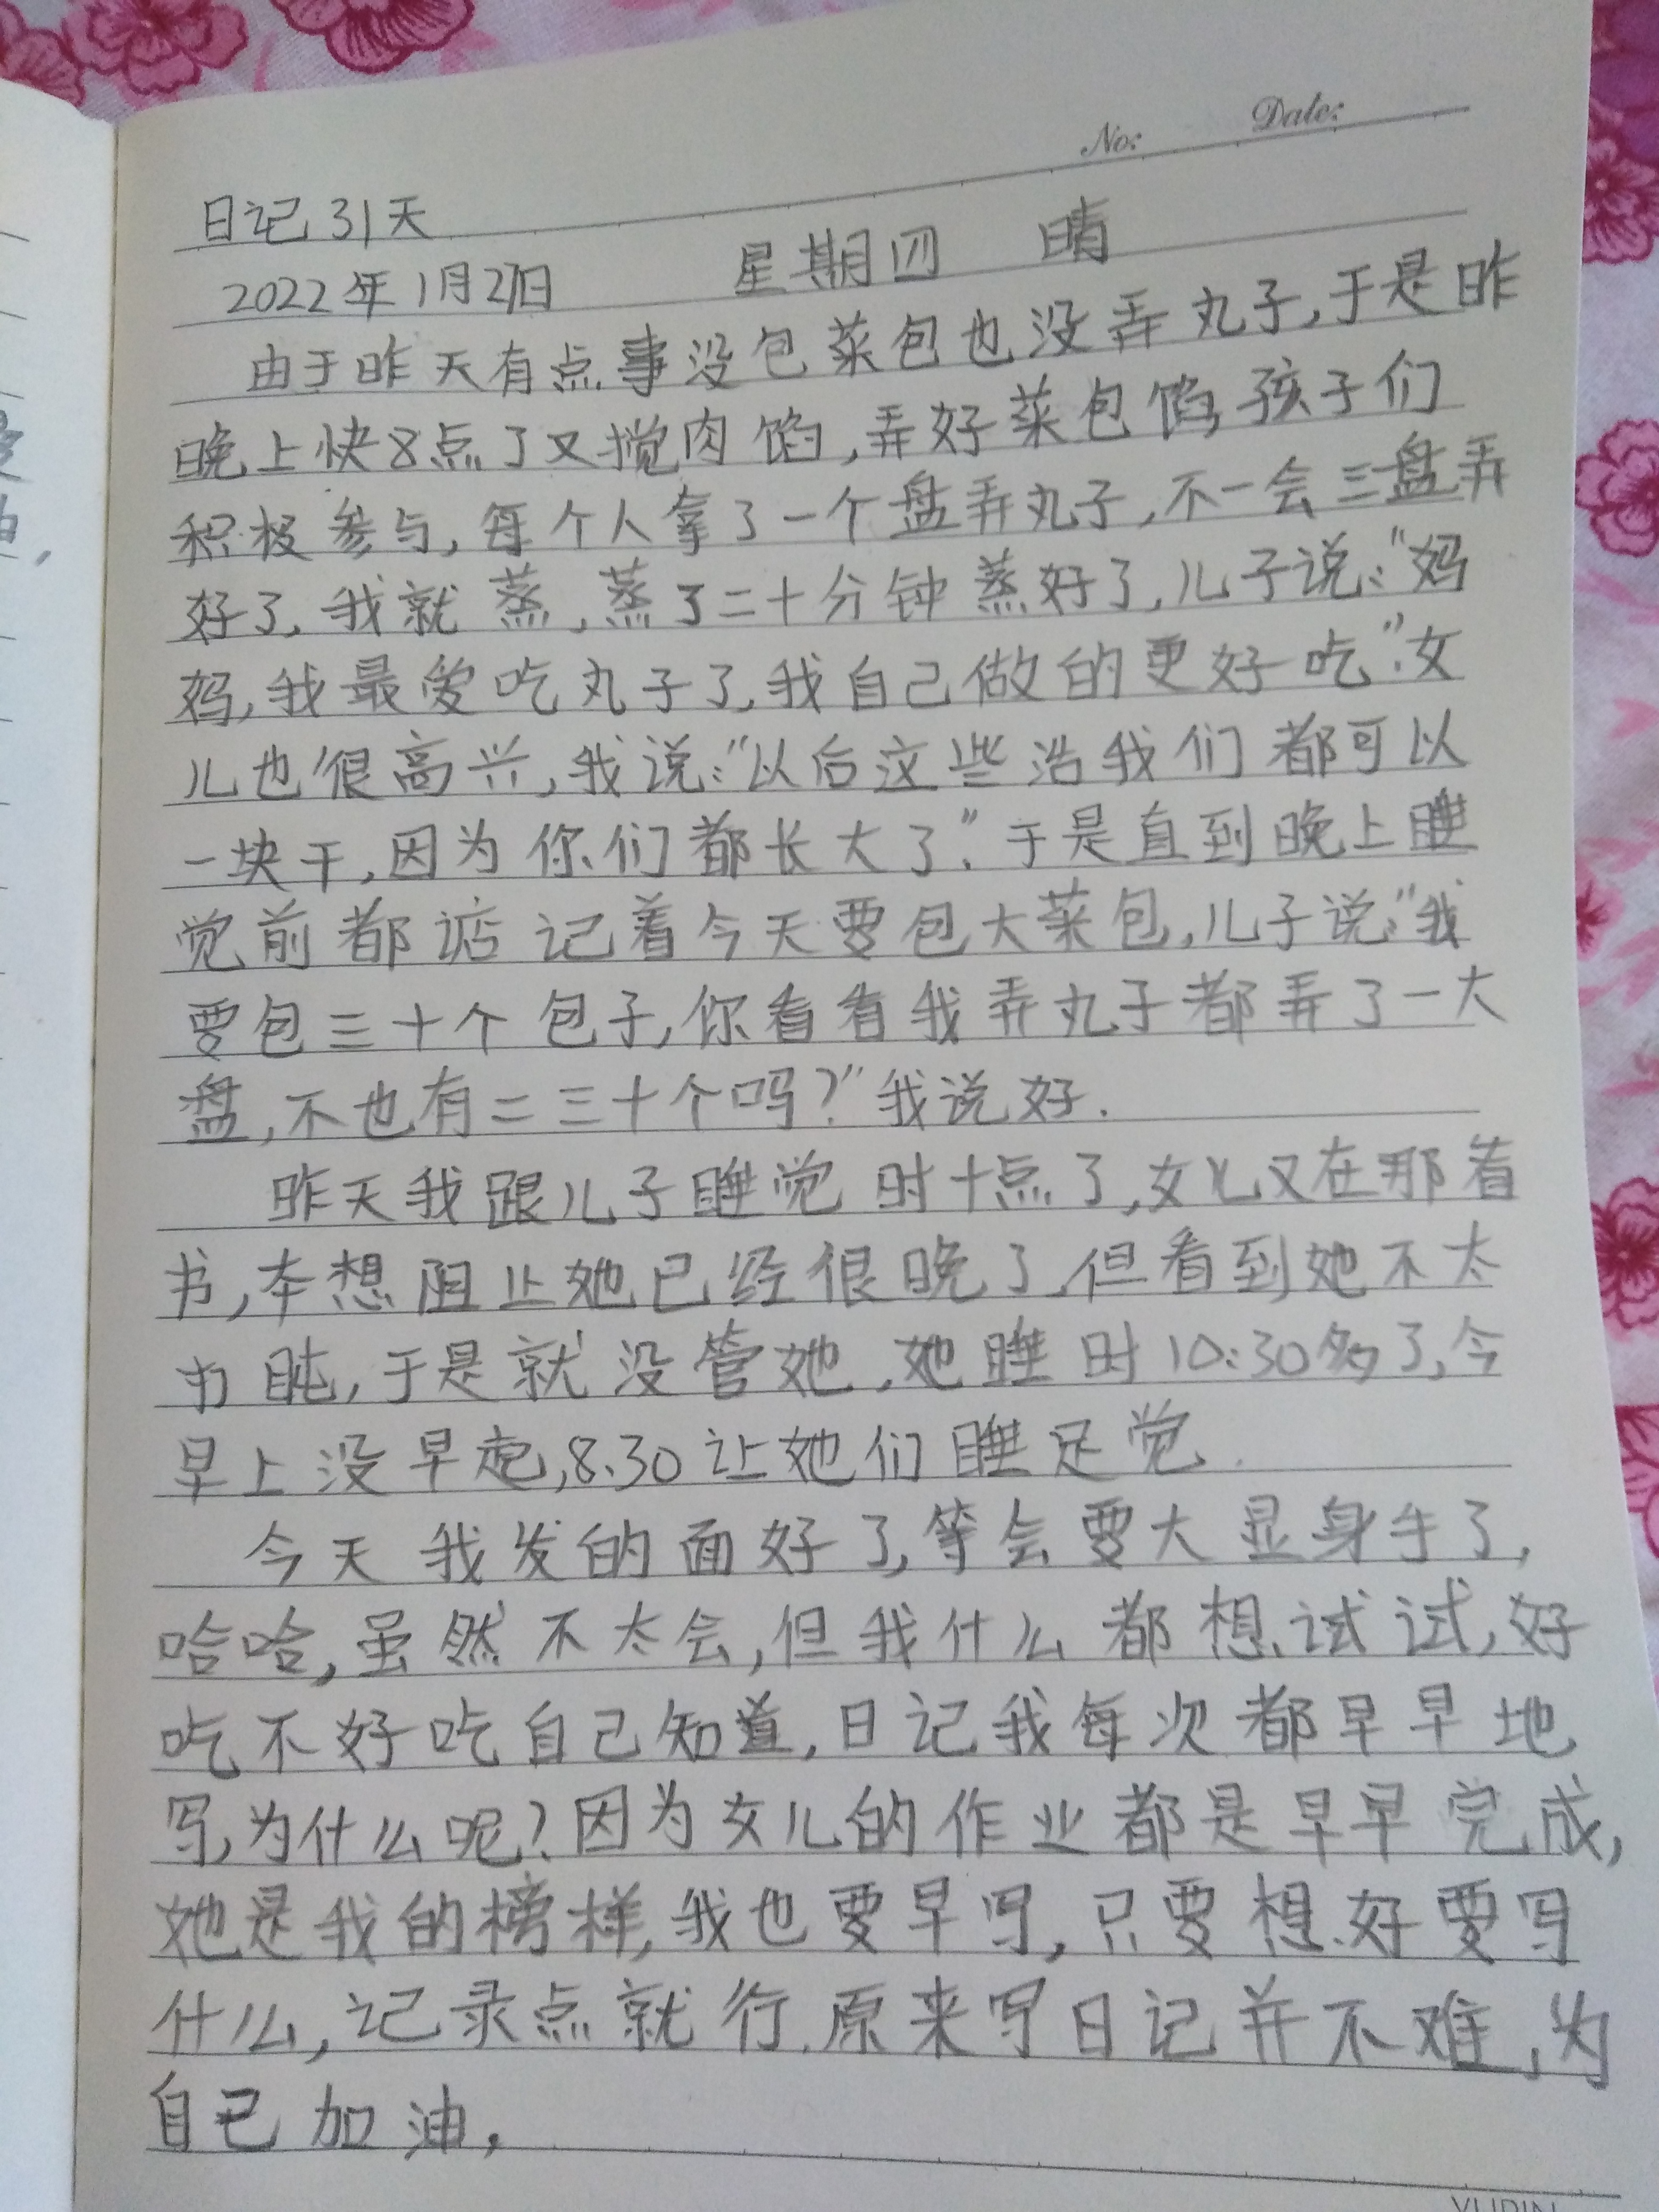 No: Date:
日记31天
2022年1月27日 星期四 晴
由于昨天有点事没包菜包也没弄丸子,于是昨
晚上快8点了又搅肉馅,弄好菜包馅,孩子们
积极参与,每个人拿了一个盘弄丸子,不一会三盘弄
好了,我就蒸,蒸了二十分钟蒸好了,儿子说:"妈
妈,我最爱吃丸子了,我自己做的更好吃".女
儿也很高兴,我说:"以后这些活我们都可以
一块干,因为你们都长大了".于是直到晚上睡
觉前都惦记着今天要包大菜包,儿子说:"我
要包三十个包子,你看看我弄丸子都弄了一大
盘,不也有二三十个吗?"我说好.
昨天我跟儿子睡觉时十点了,女儿又在那看
书,本想阻止她已经很晚了,但看到她不太
盹,于是就没管她,她睡时10:30多了,今
早上没早起,8.30让她们睡足觉.
今天我发的面好了,等会要大显身手了,
哈哈,虽然不太会,但我什么都想试试,好
吃不好吃自己知道,日记我每次都早早地
写,为什么呢?因为女儿的作业都是早早完成,
她是我的榜样,我也要早写,只要想好要写
什么,记录点就行.原来写日记并不难,为
自己加油,